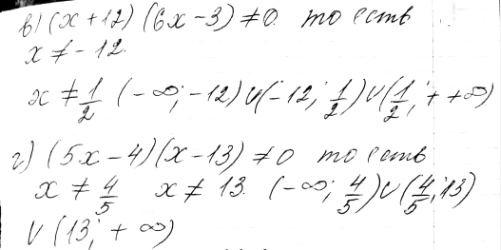 в) (x+12)(6x-3)≠0. то есть
x ≠ -12.
x ≠ 1/2 (-∞; -12)∪(-12; 1/2)∪(1/2; + +∞)
г) (5x-4)(x-13)≠0 то есть
x ≠ 4/5 x ≠ 13. (-∞; 4/5)∪(4/5; 13)
∪(13; +∞)